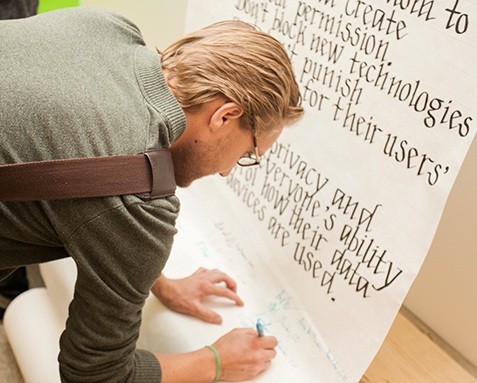 om to
create
permission.
Don't block new technologies
punish
for their users'
privacy and
everyone's ability
or how their data
devices are used.